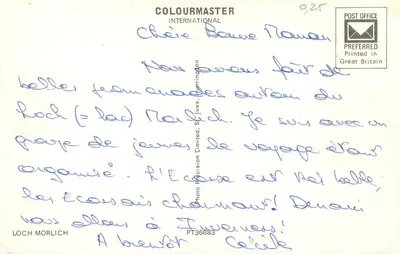 COLOURMASTER
INTERNATIONAL
0,25
POST OFFICE
PREFERRED
Printed in
Great Britain
Chère Bonne Maman
Nous avons fait de
belles promenades autour du
Loch (= lac) Morlich. Je suis avec un
groupe de jeunes, le voyage étant
organisé. L'Ecosse est très belle,
les Ecossais charmant! Demain
nous allons à Inverness!
A bientôt Cécile
Photo Precision Limited, St. Ives, Huntingdon
LOCH MORLICH
PT36683